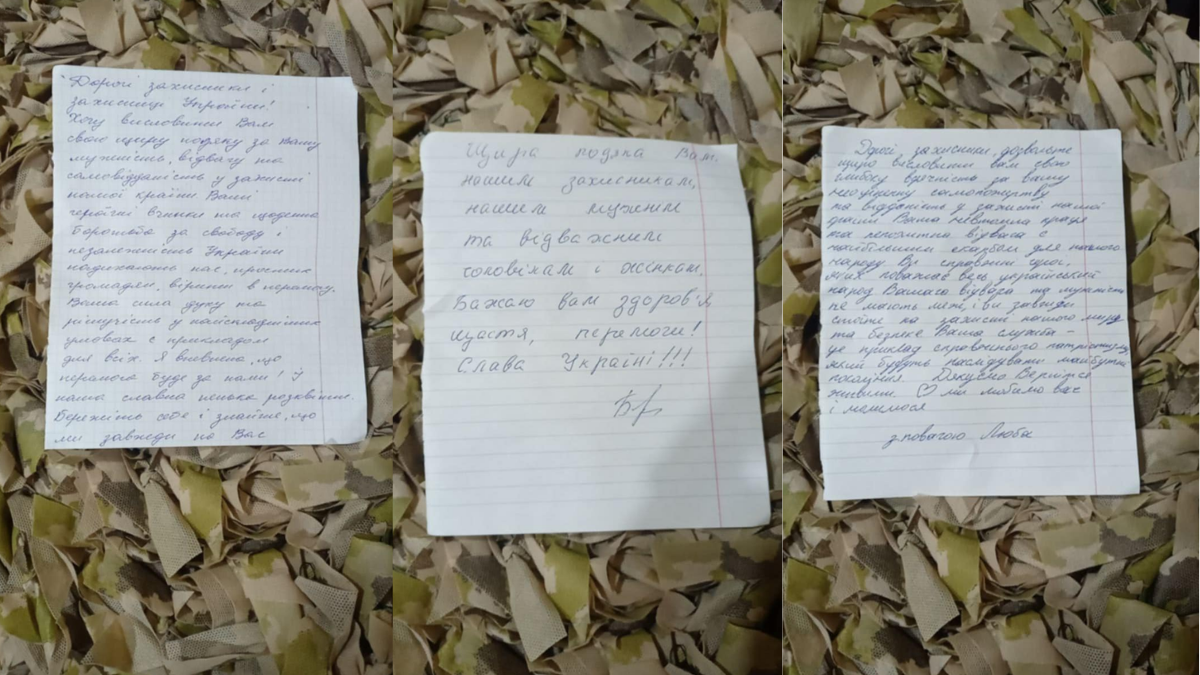 "Дорогі захисники і
захисниці України!
Хочу висловити Вам
свою щиру подяку за Вашу
мужність, відвагу та
самовідданість у захисті
нашої країни Ваші
героїчні вчинки та щоденна
боротьба за свободу і
незалежність України
надихають нас, простих
громадян, вірити в перемогу.
Ваша сила духу та
рішучість у найскладніших
умовах є прикладом
для всіх. Я впевнена, що
перемога буде за нами! І
наша славна ненька розквітне.
Бережіть себе і знайте, що
ми завжди по Вас
Щира подяка Вам,
нашим захисникам,
нашим мужнім
та відважним
чоловікам і жінкам.
Бажаю вам здоров'я,
щастя, перемоги!
Слава Україні!!!
захисники, дозвольте
щиро висловити вам свою
глибоку вдячність за вашу
самопожертву
та відданість у захисті нашої
Ваша невтомна праця
та відвага є
найбільшим скарбом для нашого
народу. Ви справжні герої,
яких поважає весь український
народ Вашою відвага та мужність
не мають меж, і ви завжди
стоїте на захисті нашого миру
та безпеки Ваша служба -
це приклад справжнього патріотизму,
який будуть наслідувати майбутні
покоління. Дякуємо Верніться
живими ♡ ми любимо вас
і молимося
з повагою Люба